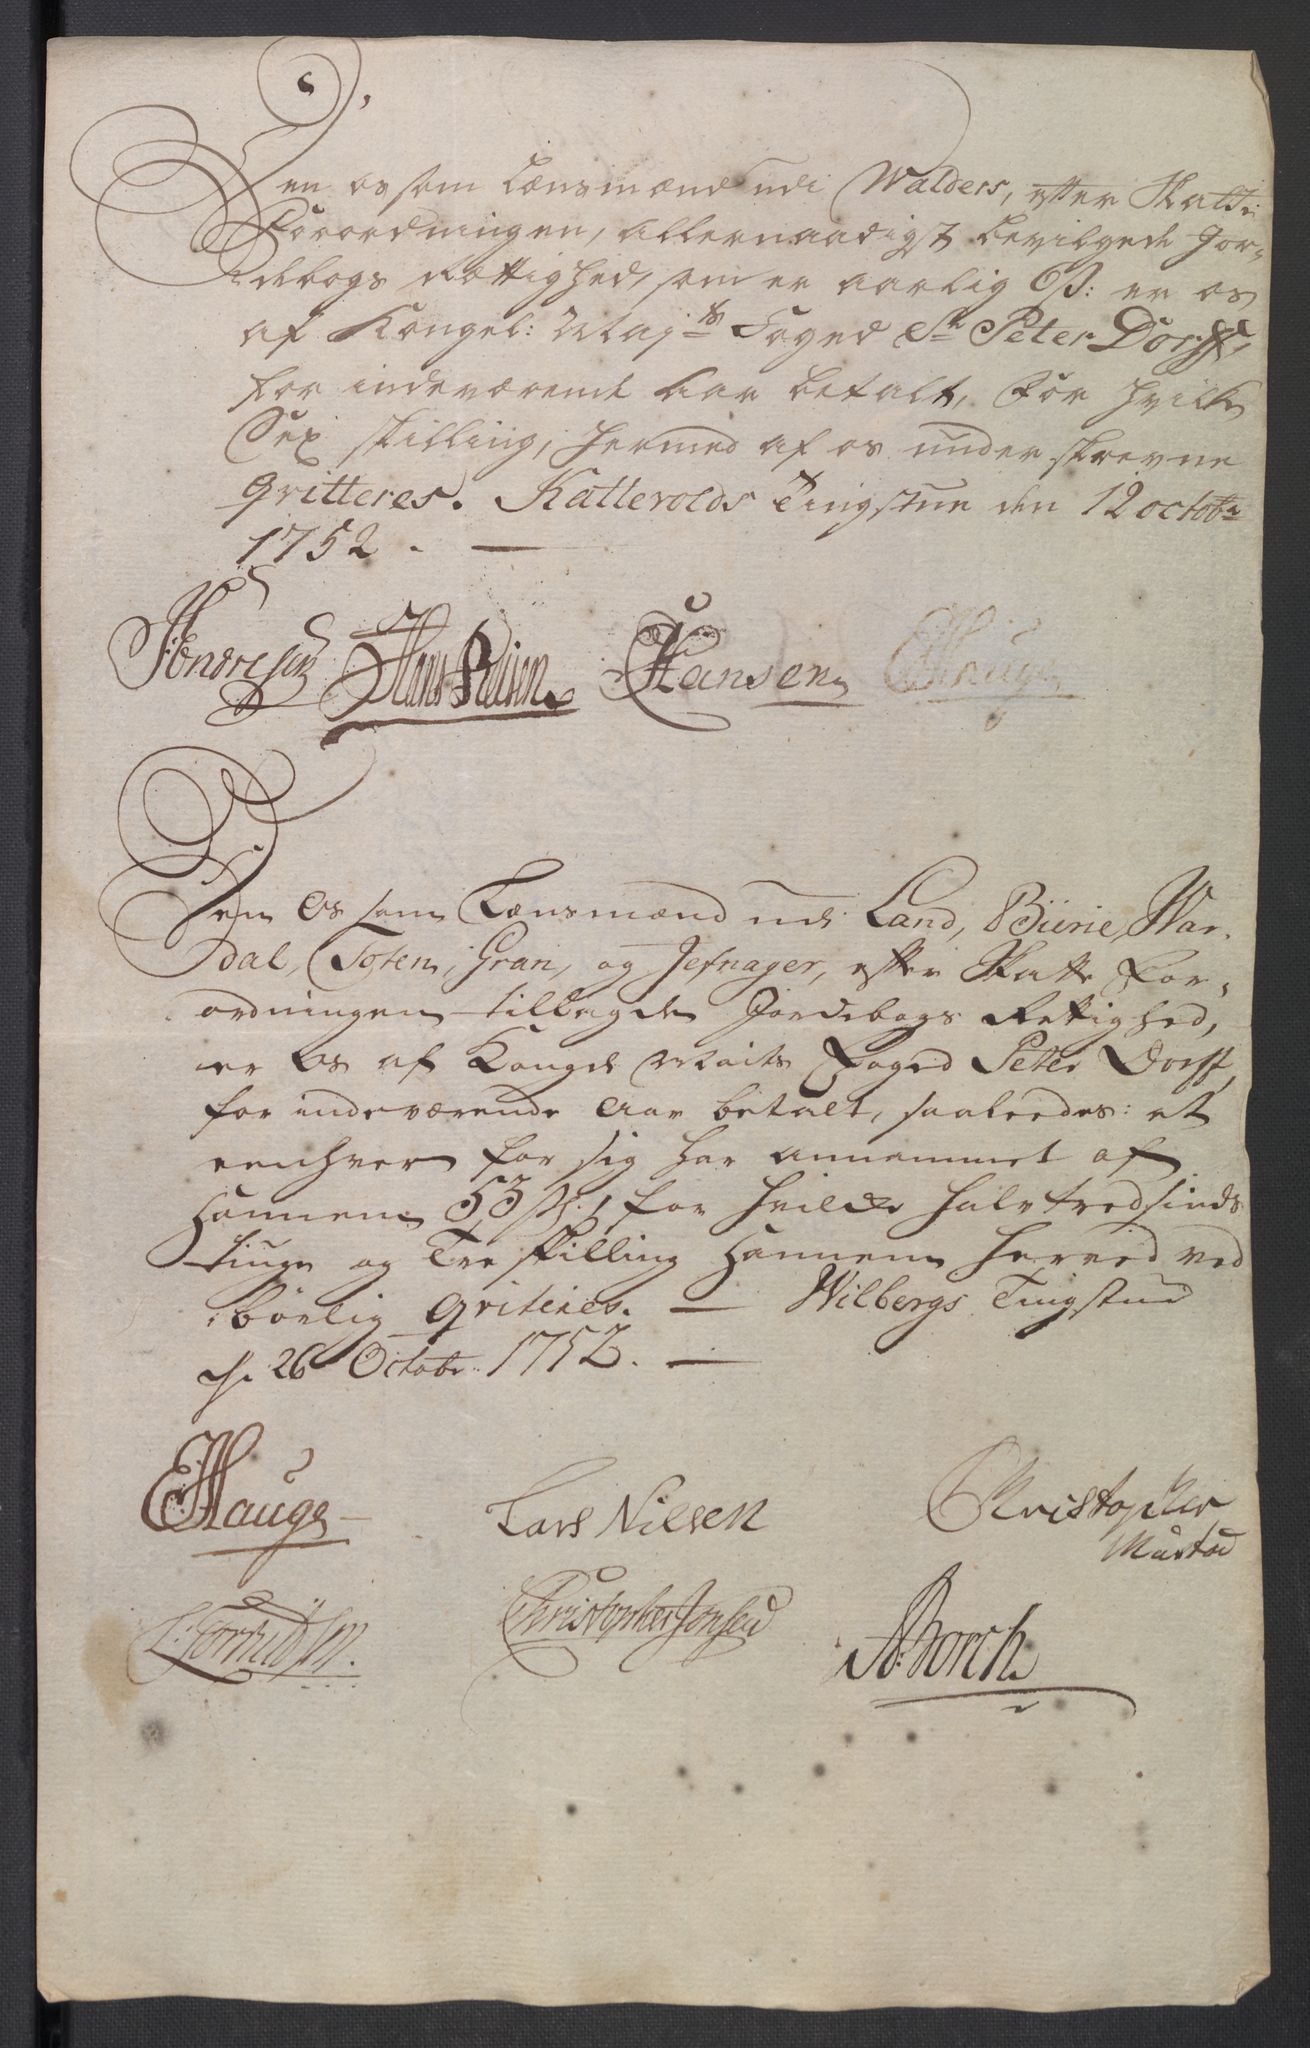 Den os som Lænsmænd udi Walders, efter Skatte
Forordningen, allernaadigst bevilgede Jor-
debogs Rettighed, som er aarlig 6 ß: er os
af Kongel: Maj:ts Foged Sr Peter Dorff,
for indeværende Aar betalt, For hvilke
Sex skilling, hermed af os underskrevne
qvitteres. Kattevolds Tingstue den 12 octobr
1752. —
Hans Hansen EHauge
Den Os som Lænsmænd udi Land, Biirie, War-
dal, Toten, Gran, og Jefnager, efter Skatte For-
ordningen tillagde Jordebogs Rettighed,
er Os af Kongel Maits Foged Peter Dorff,
for indeværende Aar betalt, saaleedes: at
eenhver for sig har annammet af
Hannem 53 ß, for hvilke halvtredsinds
tiuge og Tre skilling Hannem herved ved
børlig qviteres. — Wilbergs Tingstue
d. 26 Octobr: 1752. —
EHauge Lars Nilsen Christopher
Mustad
Christopher Jonsen A:Borch